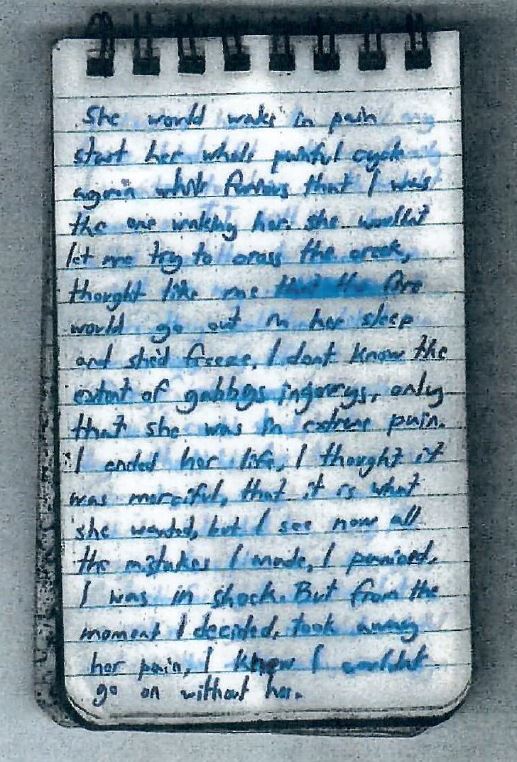 She would wake in pain
start her whole painful cycle
again while furious that I was
the one waking her. she wouldn't
let me try to cross the creek,
thought like me the fire
would go out in her sleep
and she'd freeze. I dont know the
extent of gabbys injurys. only
that she was in extreme pain.
I ended her life, I thought it
was merciful, that it is what
she wanted, but I see now all
the mistakes I made. I panicked.
I was in shock. But from the
moment I decided, took away
her pain, I knew I wouldn't
go on without her.